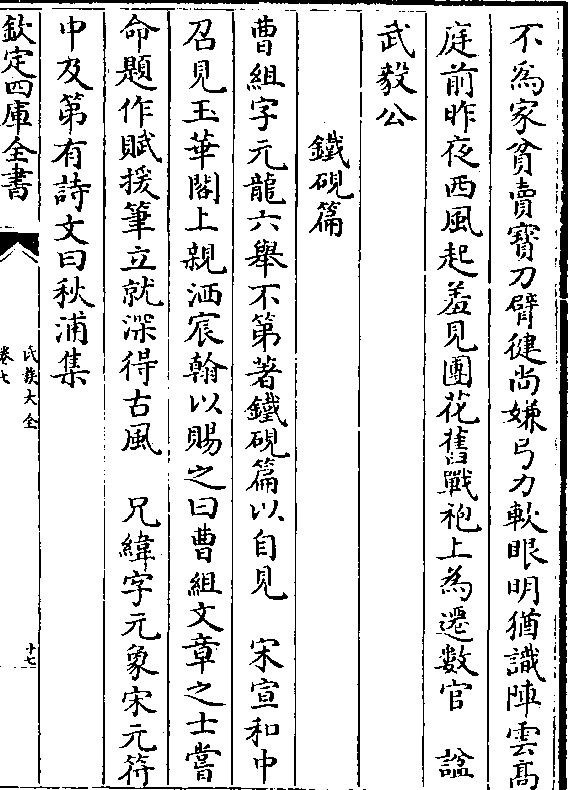 不為家貧賣寶刀臂健尚嫌弓力軟眼明猶識陣雲高
庭前昨夜西風起羞見團花舊戰袍上為遷數官　諡
武毅公
鐵硯篇
曹組字元龍六舉不第著鐵硯篇以自見　宋宣和中
召見玉華閣上親洒宸翰以賜之曰曹組文章之士嘗
命題作賦援筆立就深得古風　兄緯字元象宋元符
中及第有詩文曰秋浦集
欽定四庫全書
氏族大全
卷七
十七